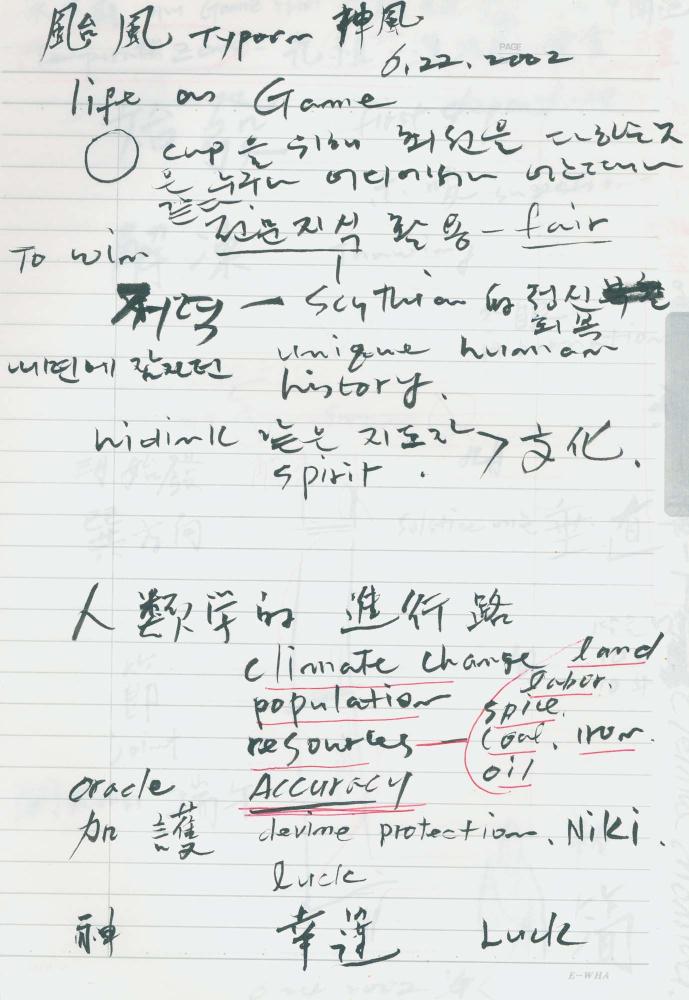 颱風 Typorm 神風
PAGE
6.22.2002
life as Game
cup을 위해 최선을 다하는것
은 누구나 어디에서나 어느때나
같다
전문지식 활용 - fair
To win
저력 - Scythian 的 정신
회복
내면에 잠자던 unique human
history.
hidink 같은 지도자 > 文化.
spirit.
人類学的 進行路
climate change land
population labor.
spice.
resources — coal, iron.
oil
oracle Accuracy
加護 devine protection. Niki.
luck
神 幸運 Luck
E-WHA